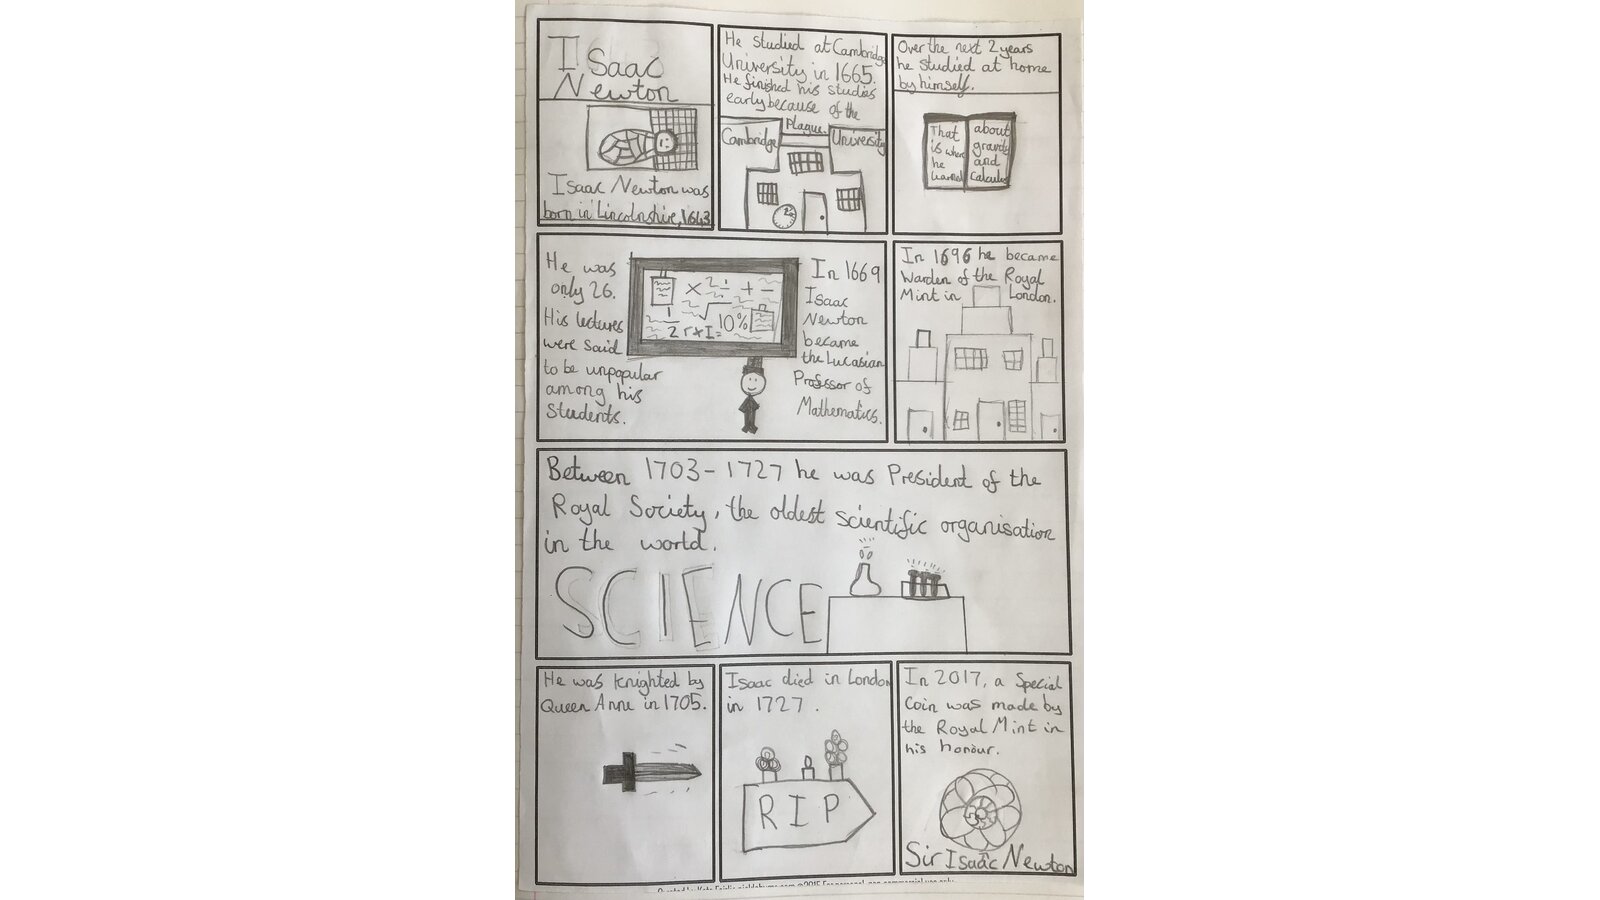 Isaac
Newton
Isaac Newton was
born in Lincolnshire, 1643
He studied at Cambridge
University in 1665.
He finished his studies
early because of the
Plague.
Cambridge
University
Over the next 2 years
he studied at home
by himself.
That
is where
he
learned
about
gravity
and
calculus
He was
only 26.
His lectures
were said
to be unpopular
among his
Students.
× 2 ÷ + −
1
2 r×I= 10%
In 1669
Isaac
Newton
became
the Lucasian
Professor of
Mathematics.
In 1696 he became
Warden of the Royal
Mint in London.
Between 1703-1727 he was President of the
Royal Society, the oldest scientific organisation
in the world.
SCIENCE
He was knighted by
Queen Anne in 1705.
Isaac died in London
in 1727.
RIP
In 2017, a Special
Coin was made by
the Royal Mint in
his honour.
Sir Isaac Newton